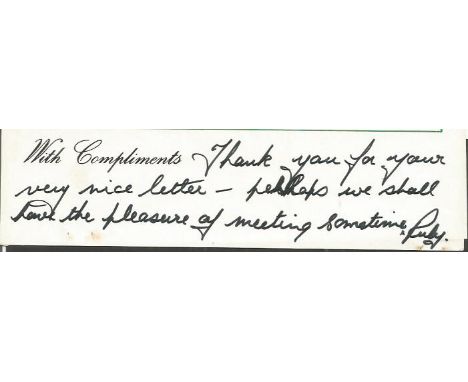 With Compliments Thank you for your
very nice letter – perhaps we shall
have the pleasure of meeting sometime, Ruby.